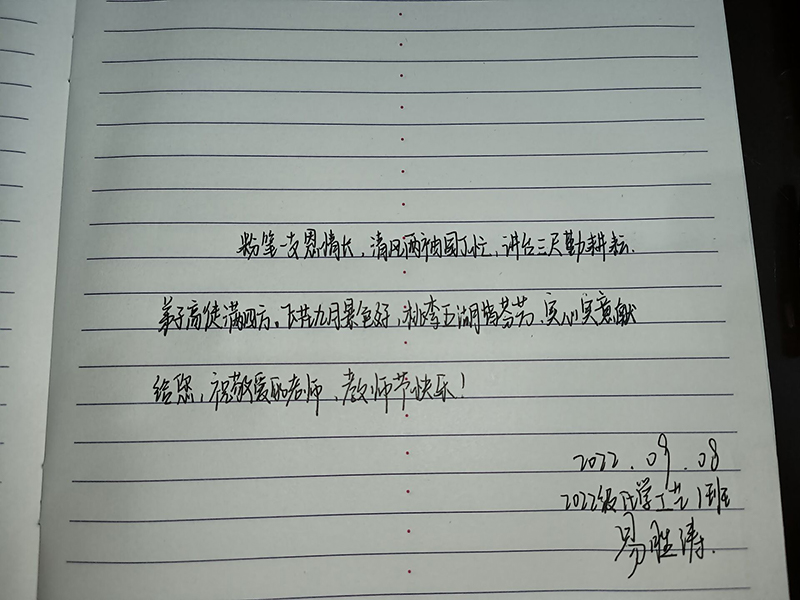 粉笔一支恩情长，清风两袖园丁忙，讲台三尺勤耕耘.
弟子高徒满四方。飞共九月景色好，桃李五湖皆芬芳、实心实意献
给您，祝敬爱的老师、教师节快乐！
2022.09.08
2022级化学工艺1班
易胜涛.